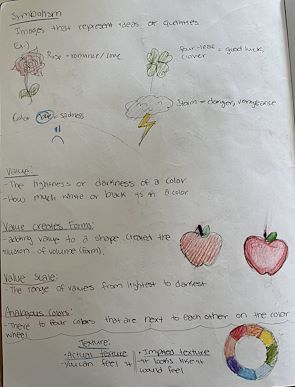 Symbolism
Images that represent ideas or qualities
Ex:)
Rose = romance/love
four-leaf = good luck,
clover
Storm = danger, vengeance
Color blue = sadness
Value:
-The lightness or darkness of a color
-How much white or black is in a color
Value Creates Form:
-adding value to a shape created the
illusion of volume (form).
Value Scale:
-The range of values from lightest to darkest
Analogous Colors:
-Three to four colors that are next to each other on the color
wheel
Texture:
•Actual texture
you can feel it
•Implied texture
-it looks like it
would feel